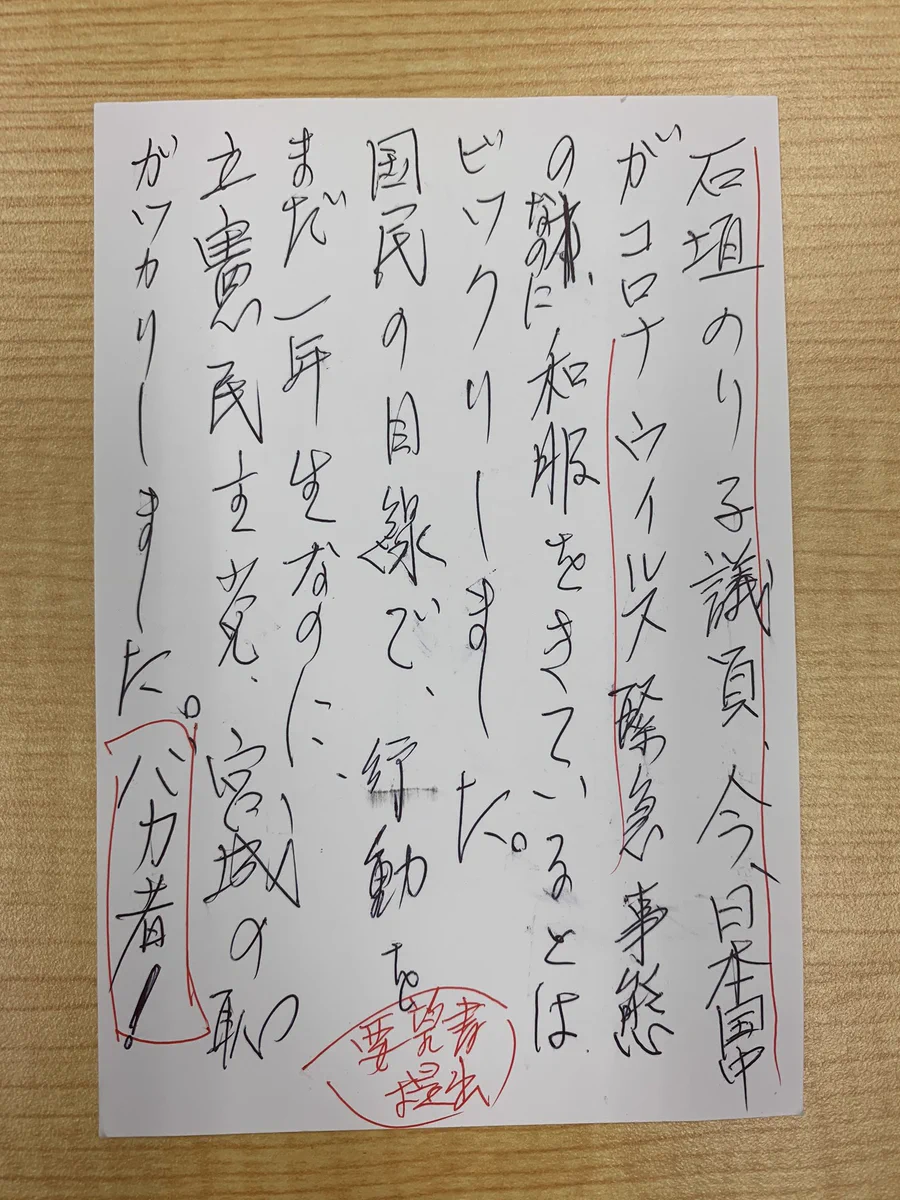 石垣のり子議員、今、日本国中
がコロナウイルス緊急事態
のなのに和服をきているとは
ビックリしました。
国民の目線で、行動を
まだ一年生なのに、
立憲民主党、宮城の恥
ガッカリしました。バカ者!
要望書
提出